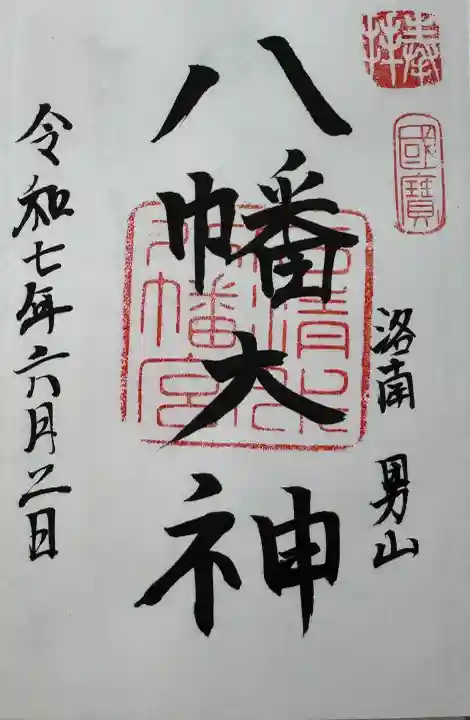 奉拝
國寶
洛南 男山
八幡大神
石清水
八幡宮
令和七年六月二日